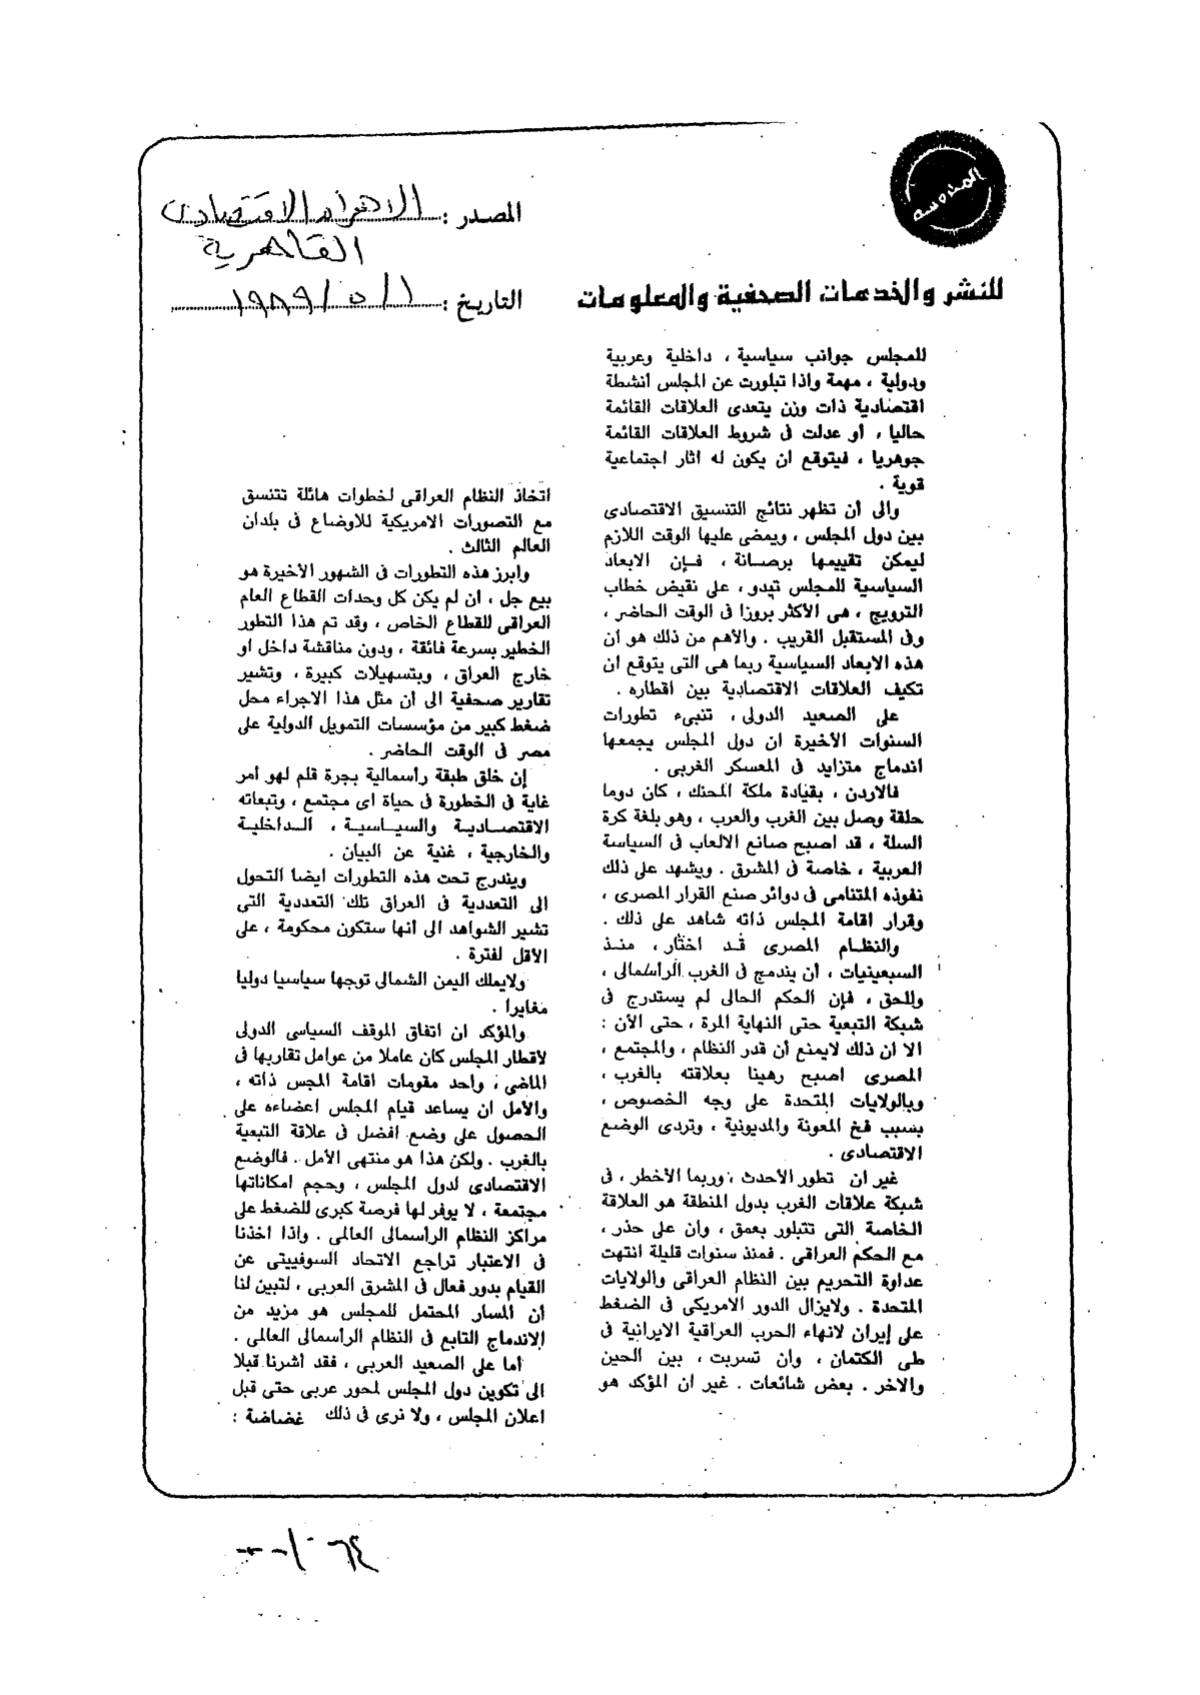 المحروسة
المصدر : الاهرام الاقتصادى
القاهرية
التاريخ : ١ / ٥ / ١٩٨٩
للنشر والخدمات الصحفية والمعلومات
للمجلس جوانب سياسية ، داخلية وعربية
ودولية ، مهمة واذا تبلورت عن المجلس أنشطة
اقتصادية ذات وزن يتعدى العلاقات القائمة
حاليا ، أو عدلت فى شروط العلاقات القائمة
جوهريا ، فيتوقع ان يكون له اثار اجتماعية
قوية .
والى أن تظهر نتائج التنسيق الاقتصادى
بين دول المجلس ، ويمضى عليها الوقت اللازم
ليمكن تقييمها برصانة ، فإن الابعاد
السياسية للمجلس تبدو ، على نقيض خطاب
الترويج ، هى الأكثر بروزا فى الوقت الحاضر ،
وفى المستقبل القريب . والأهم من ذلك هو ان
هذه الابعاد السياسية ربما هى التى يتوقع ان
تكيف العلاقات الاقتصادية بين اقطاره .
على الصعيد الدولى ، تنبىء تطورات
السنوات الأخيرة ان دول المجلس يجمعها
اندماج متزايد فى المعسكر الغربى .
فالاردن ، بقيادة ملكة المحنك ، كان دوما
حلقة وصل بين الغرب والعرب ، وهو بلغة كرة
السلة ، قد اصبح صانع الالعاب فى السياسة
العربية ، خاصة فى المشرق . ويشهد على ذلك
نفوذه المتنامى فى دوائر صنع القرار المصرى ،
وقرار اقامة المجلس ذاته شاهد على ذلك .
والنظام المصرى قد اختار ، منذ
السبعينيات ، أن يندمج فى الغرب الراسمالى ،
وللحق ، فإن الحكم الحالى لم يستدرج فى
شبكة التبعية حتى النهاية المرة ، حتى الأن :
الا ان ذلك لايمنع أن قدر النظام ، والمجتمع ،
المصرى اصبح رهينا بعلاقته بالغرب ،
وبالولايات المتحدة على وجه الخصوص ،
بسبب فخ المعونة والمديونية ، وتردى الوضع
الاقتصادى .
غير ان تطور الأحدث ، وربما الأخطر ، فى
شبكة علاقات الغرب بدول المنطقة هو العلاقة
الخاصة التى تتبلور بعمق ، وان على حذر ،
مع الحكم العراقى . فمنذ سنوات قليلة انتهت
عداوة التحريم بين النظام العراقى والولايات
المتحدة . ولايزال الدور الامريكى فى الضغط
على إيران لانهاء الحرب العراقية الايرانية فى
طى الكتمان ، وان تسربت ، بين الحين
والاخر . بعض شائعات . غير ان المؤكد هو
اتخاذ النظام العراقى لخطوات هائلة تتنسق
مع التصورات الامريكية للاوضاع فى بلدان
العالم الثالث .
وابرز هذه التطورات فى الشهور الأخيرة هو
بيع جل ، ان لم يكن كل وحدات القطاع العام
العراقى للقطاع الخاص ، وقد تم هذا التطور
الخطير بسرعة فائقة ، ودون مناقشة داخل او
خارج العراق ، وبتسهيلات كبيرة ، وتشير
تقارير صحفية الى ان مثل هذا الاجراء محل
ضغط كبير من مؤسسات التمويل الدولية على
مصر فى الوقت الحاضر .
إن خلق طبقة رأسمالية بجرة قلم لهو أمر
غاية فى الخطورة فى حياة اى مجتمع ، وتبعاته
الاقتصادية والسياسية ، الداخلية
والخارجية ، غنية عن البيان .
ويندرج تحت هذه التطورات ايضا التحول
الى التعددية فى العراق تلك التعددية التى
تشير الشواهد الى انها ستكون محكومة ، على
الأقل لفترة .
ولايملك اليمن الشمالى توجها سياسيا دوليا
مغايرا .
والمؤكد ان اتفاق الموقف السياسى الدولى
لاقطار المجلس كان عاملا من عوامل تقاربها فى
الماضى ، واحد مقومات اقامة المجس ذاته ،
والأمل ان يساعد قيام المجلس اعضاءه على
الحصول على وضع افضل فى علاقة التبعية
بالغرب . ولكن هذا هو منتهى الأمل . فالوضع
الاقتصادى لدول المجلس ، وحجم امكاناتها
مجتمعة ، لا يوفر لها فرصة كبرى للضغط على
مراكز النظام الراسمالى العالمى . واذا اخذنا
فى الاعتبار تراجع الاتحاد السوفييتى عن
القيام بدور فعال فى المشرق العربى ، لتبين لنا
أن المسار المحتمل للمجلس هو مزيد من
الاندماج التابع فى النظام الراسمالى العالمى .
أما على الصعيد العربى ، فقد أشرنا قبلا
الى تكوين دول المجلس لمحور عربى حتى قبل
اعلان المجلس ، ولا نرى فى ذلك غضاضة :